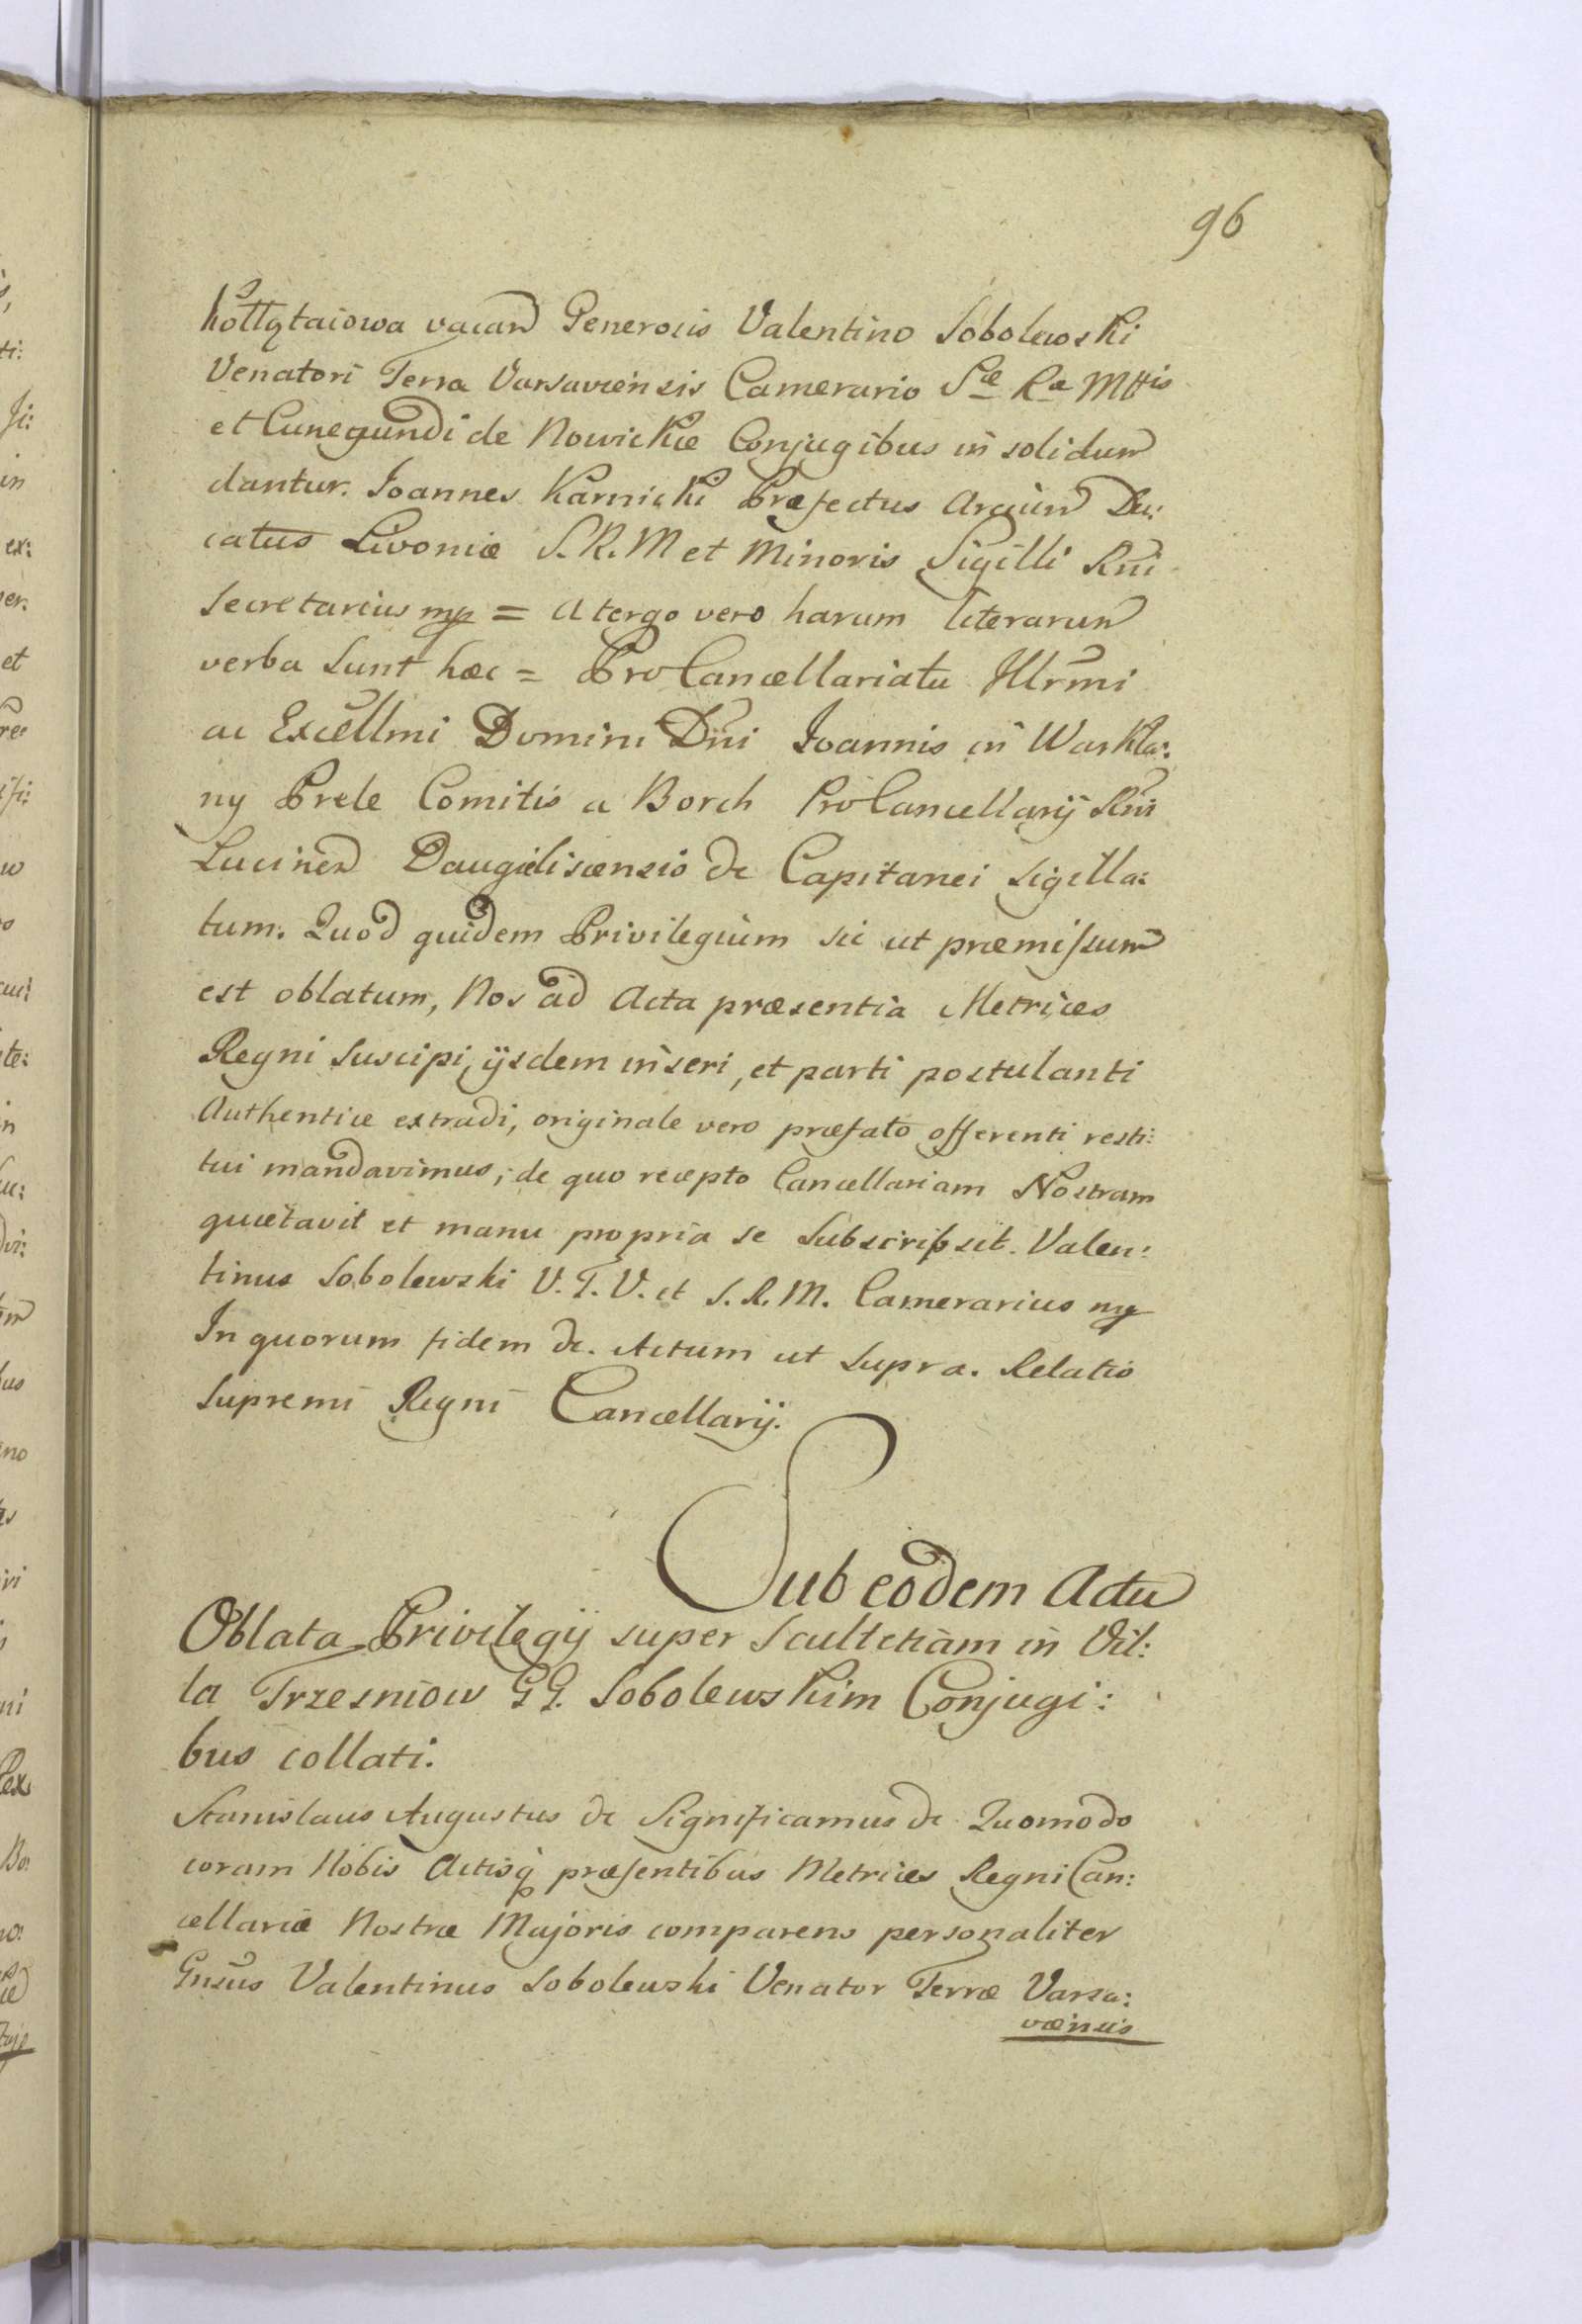 96
Kołłątaiowa vacan Generosis Valentino Sobolewski
Venatori Terræ Varsaviensis Camerario Sæ Ræ Mttis
et Cunegundi de Nowickie Conjugibus in solidum
dantur. Joannes Karnicki Præfectus Arcium Du:
catus Livoniæ S.R.M et Minoris Sigilli Rni
Secretarius mp = A tergo vero harum literarum
verba sunt hæc = Pro Cancellariatu Illrmi
ac Excellmi Domini Dni Joannis in Warkla:
ny Prele Comitis a Borch ProCancellarij Rni
Lucinen Daugieliscensis &c Capitanei sigilla:
tum. Quod quidem Privilegium sic ut præmissum
est oblatum, Nos ad Acta præsentia Metrices
Regni suscipi, ijsdem inseri, et parti postulanti
Authentice extradi, originale vero præfato offerenti resti:
tui mandavimus; de quo recepto Cancellariam Nostram
quietavit et manu propria se subscripsit. Valen:
tinus Sobolewski V.T.V. et S.R.M. Camerarius mp
In quorum fidem &c. Actum ut supra. Relatio
Supremi Regni Cancellarij.
Sub eodem Actu
Oblata Privilegij super Scultetiam in Vil:
la Trzesniow GG. Sobolewskim Conjugi:
bus collati.
Stanislaus Augustus &c Significamus &c Quomodo
coram Nobis Actisq præsentibus Metrices Regni Can:
cellariæ Nostræ Majoris comparens personaliter
Gnsus Valentinus Sobolewski Venator Terræ Varsa:
viensis